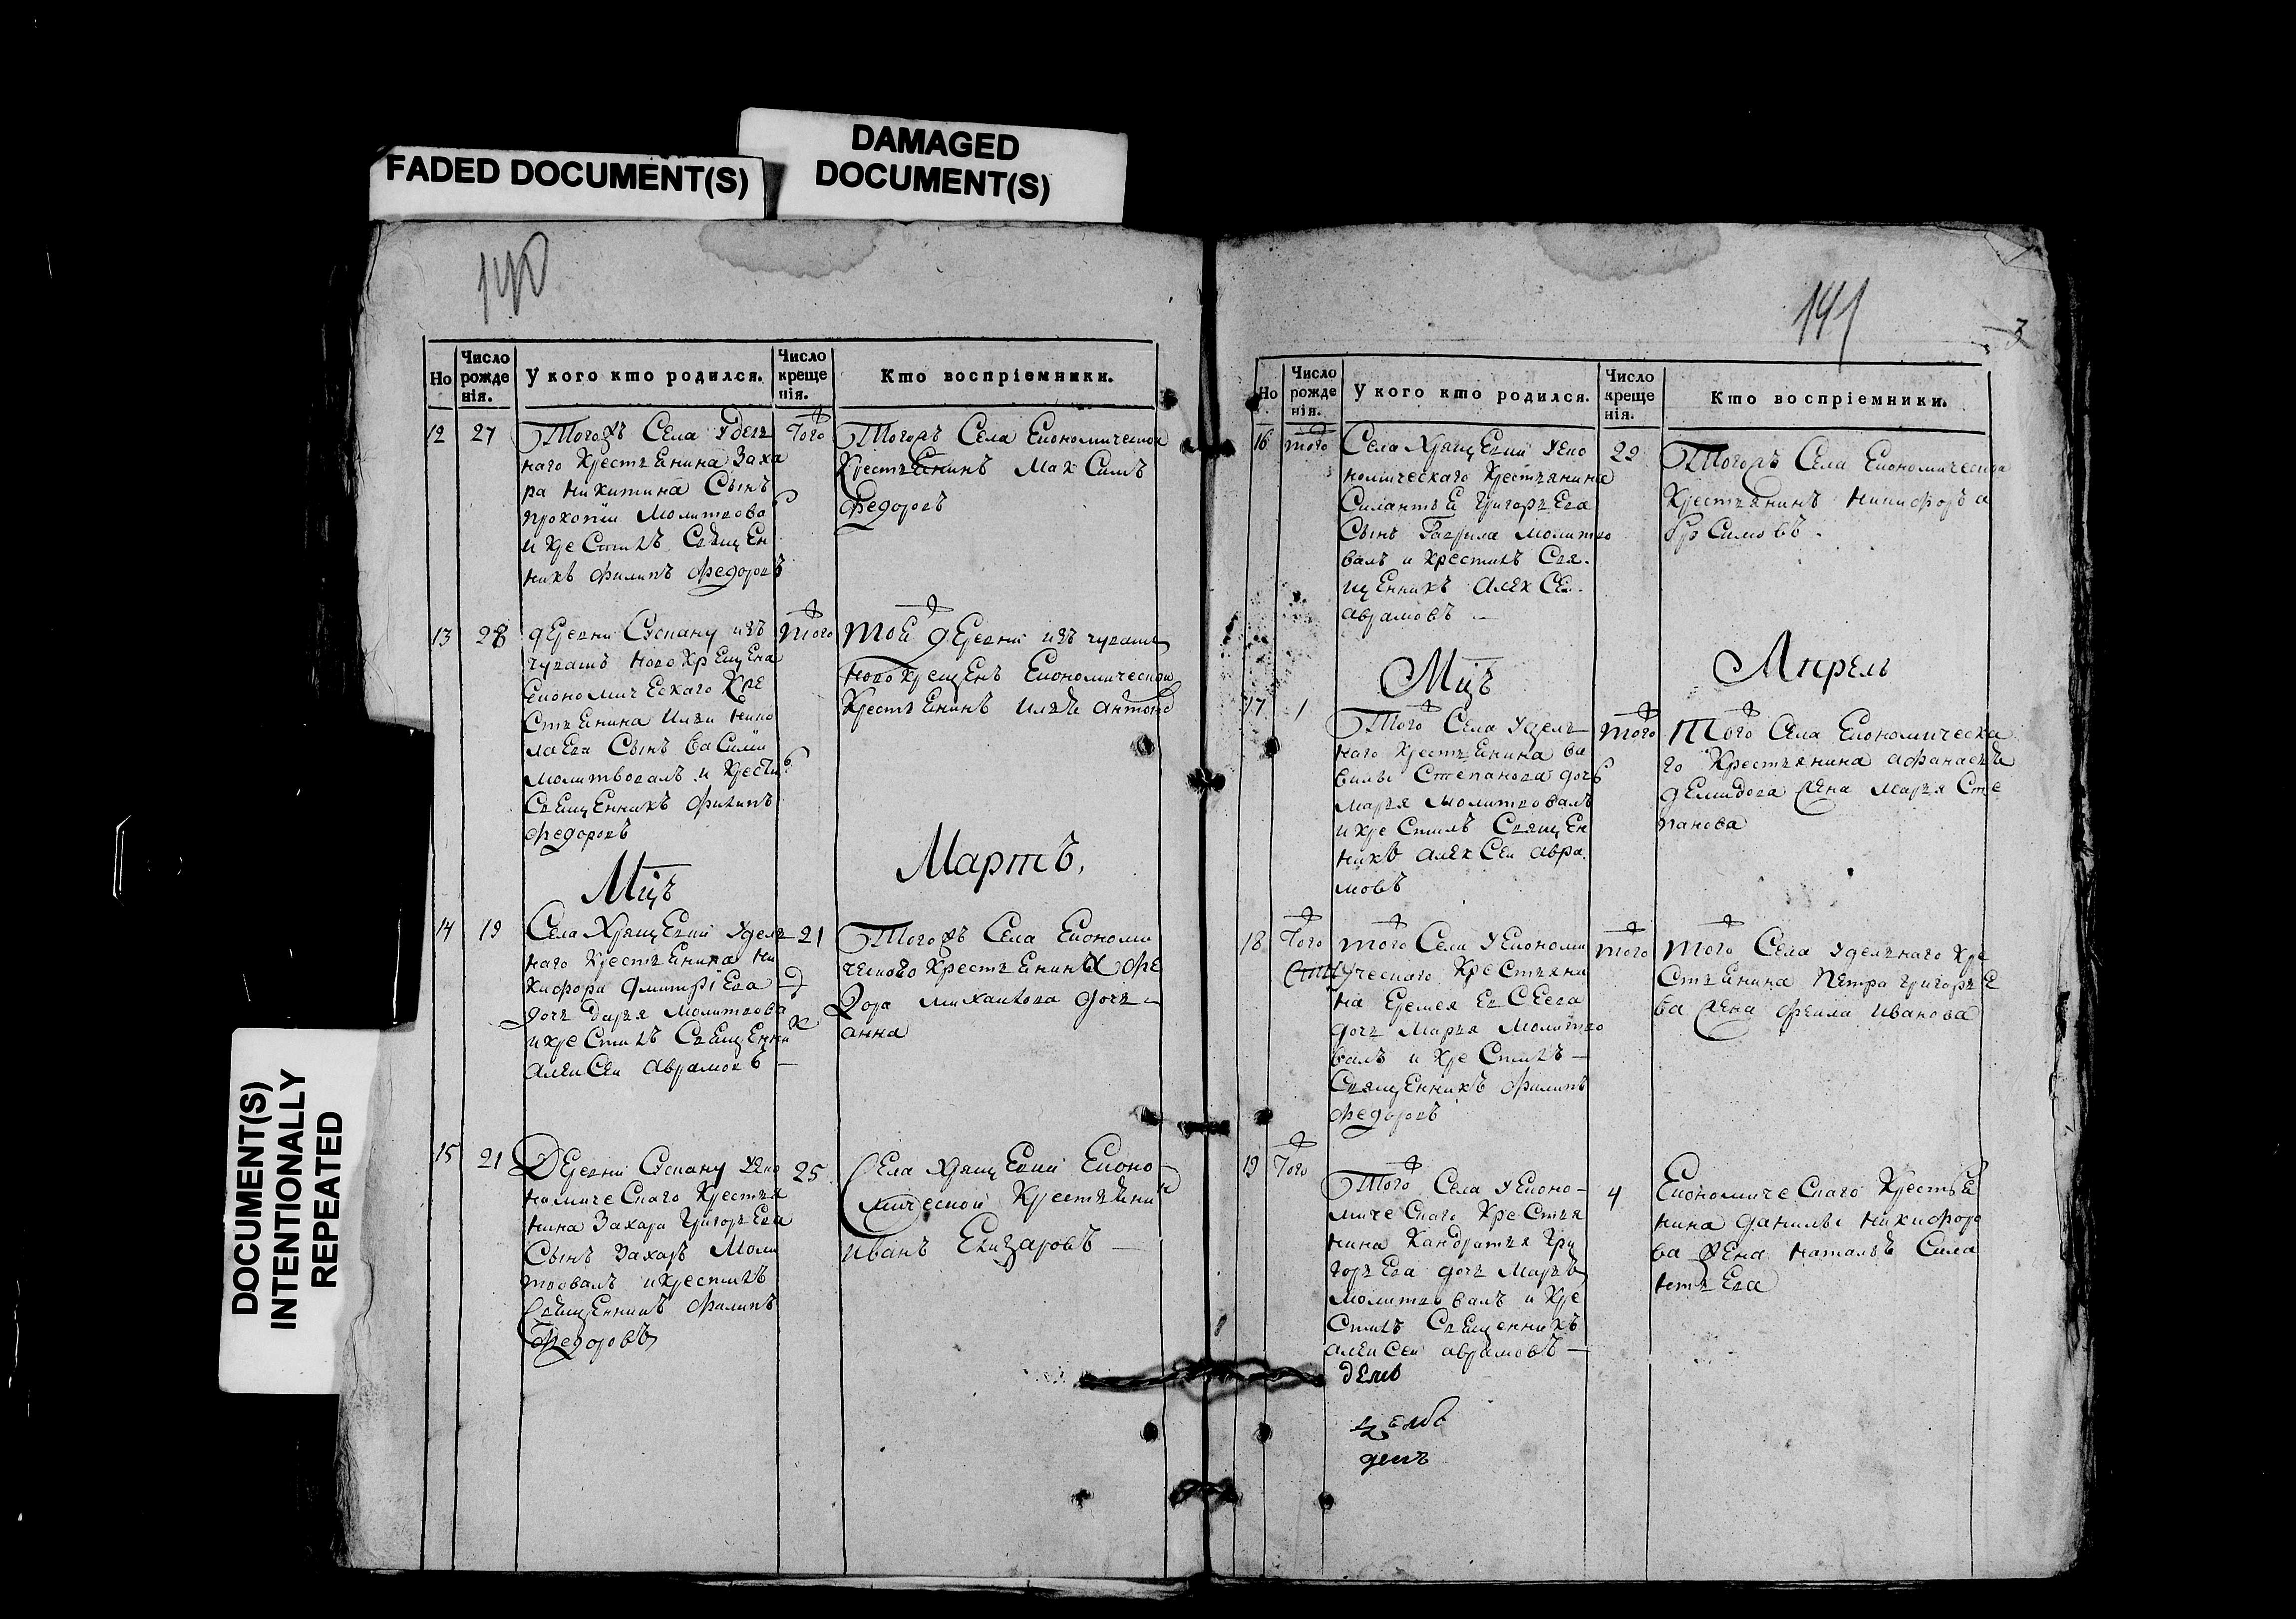 FADED DOCUMENT(S)
DAMAGED
DOCUMENT(S)
DOCUMENT(S)
INTENTIONALLY
REPEATED
140
Но
Число рожденія.
У кого кто родился.
Число крещенія.
Кто воспріемники.
12
27
Тогожъ Села Удел
наго Крестьянина Заха
ра никитина Сынъ
прокопіи Молитвова
и кре Стилъ Свящ Ен
никъ филипъ федоровъ
того
Тогожъ Села Економической
Крестьянинъ Мак Симъ
федоровъ
13
28
деревни изъ
чувашъ новокрещена
Економическаго Кре
Стьянина Ильи нико
лаева Сынъ ва Силіи
молитвовалъ и крести
Священникъ филипъ
федоровъ
того
той деревни изъ чуваш
новокрещенъ Економической
Крестьянинъ
Мцъ
Мартъ.
14
19
Села Хрящевки Удель
наго Крестьянина ни
кифора дмитріева
дочь дарья молитвова
и кре Стилъ Священни
алек Сеи аврамовъ
21
Тогожъ Села Економи
ческово Крестьянина фе
дора михаилова дочь
анна
15
21
Деревни Еко
номиче Скаго Крестья
нина Захара Григорьева
Сынъ Захаръ Моли
твовалъ и крестилъ
Священникъ филипъ
федоровъ
25
Села Хрящевки Еконо
мической Крестьянинъ
иванъ Елизаровъ
141
3
Но
Число рожденія.
У кого кто родился.
Число крещенія.
Кто воспріемники.
16
того
Села Хрящевки Уеко
номическаго Крестьянина
Силантья Григорьева
Сынъ Гаврила молитво
валъ и крестилъ Свя
щенникъ алек Сеи
аврамовъ
29
Тогожъ Села Економической
Крестьянинъ никифоръ
Мцъ
Апрель
17
1
Того Села Удель
наго Крестьянина ва
вилы Степанова дочь
марья молитвовалъ
и кре Стилъ Священ
никъ алек Сеи авра
мовъ
того
Того Села Економическа
го Крестьянина афанасья
демидова жена марья Сте
панова
18
того
того Села Уекономи
ческаго Кре Стьяни
на Еремея Ев Сеева
дочь Марья молитво
валъ и кре Стилъ
Священникъ филипъ
федоровъ
того
того Села Удельнаго Кре
Стьянина петра григорье
ва жена иванова
19
того
Того Села Уеконо
миче Скаго Кре Стья
нина Кандратья Гри
горьева дочь Марья
молитвовалъ и кре
Стилъ Священникъ
алек Сеи аврамовъ
4
Економиче Скаго Крестья
нина данилы никифоро
ва жена наталья Сила
нтьева